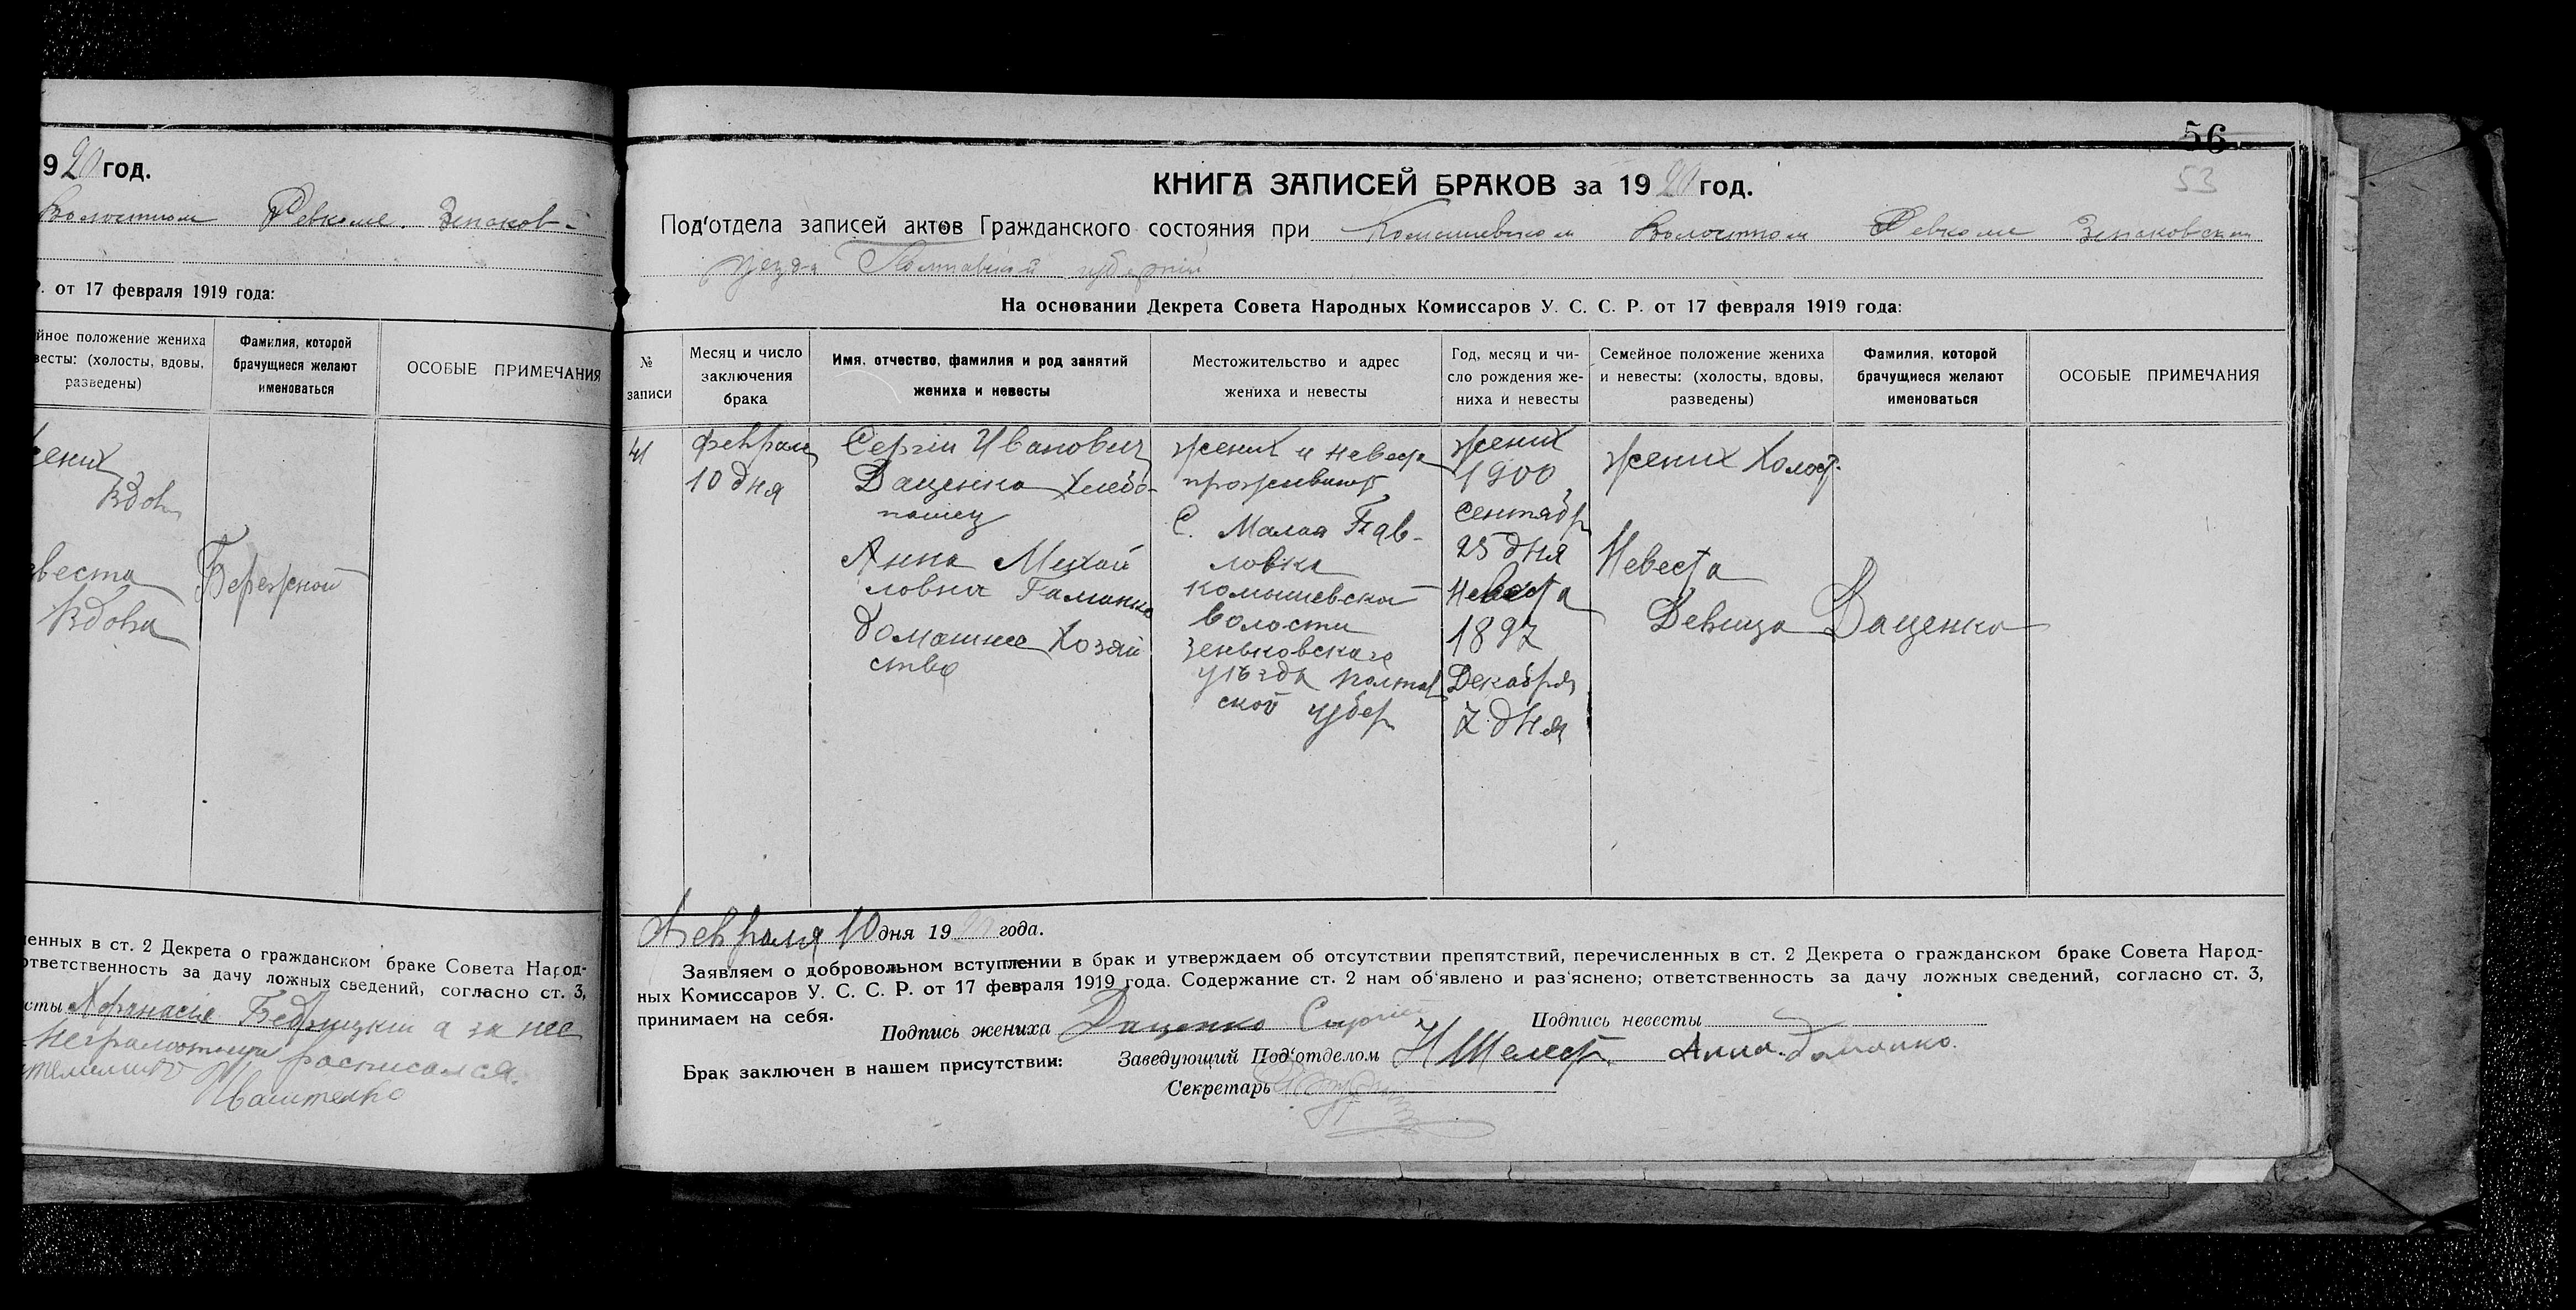 920 год.
Волостном Ревкоме Зеньков-
Р. от 17 февраля 1919 года:
йное положение жениха
весты: (холосты, вдовы,
разведены)
Фамилия, которой
брачущиеся желают
именоваться
ОСОБЫЕ ПРИМЕЧАНИЯ
жених
вдов
евеста
вдова
Бережной
ленных в ст. 2 Декрета о гражданском браке Совета Народ-
ответственность за дачу ложных сведений, согласно ст. 3,
сты а за нее
неграмотную расписался
56
53
КНИГА ЗАПИСЕЙ БРАКОВ за 1920 год.
Под'отдела записей актов Гражданского состояния при Комишевском Волостном Ревкоме Зеньковского
уезда Полтавской губернии
На основании Декрета Совета Народных Комиссаров У. С. С. Р. от 17 февраля 1919 года:
№
записи
Месяц и число
заключения
брака
Имя, отчество, фамилия и род занятий
жениха и невесты
Местожительство и адрес
жениха и невесты
Год, месяц и чи-
сло рождения же-
ниха и невесты
Семейное положение жениха
и невесты: (холосты, вдовы,
разведены)
Фамилия, которой
брачущиеся желают
именоваться
ОСОБЫЕ ПРИМЕЧАНИЯ
41
февраля
10 дня
Сергiй Иванович
Даценко хлебо-
пашец
Анна Михай
ловна Гаманко
домашнее хозяй
ство
жених и невеста
проживают
С. Малая Пав-
ловка
комышевской
волости
зеньковскаго
уѣзда полтав
ской губер
жених
1900
сентябр
25 дня
Невеста
1897
Декабря
7 дня
жених холост.
Невеста
Девица
Даценко
Февраля 10 дня 1920 года.
Заявляем о добровольном вступлении в брак и утверждаем об отсутствии препятствий, перечисленных в ст. 2 Декрета о гражданском браке Совета Народ-
ных Комиссаров У. С. С. Р. от 17 февраля 1919 года. Содержание ст. 2 нам об'явлено и раз'яснено; ответственность за дачу ложных сведений, согласно ст. 3,
принимаем на себя.
Подпись жениха Даценко Сергiй
Подпись невесты
Брак заключен в нашем присутствии:
Заведующий Под'отделом Н Шелест
Анна Гаманко
Секретарь